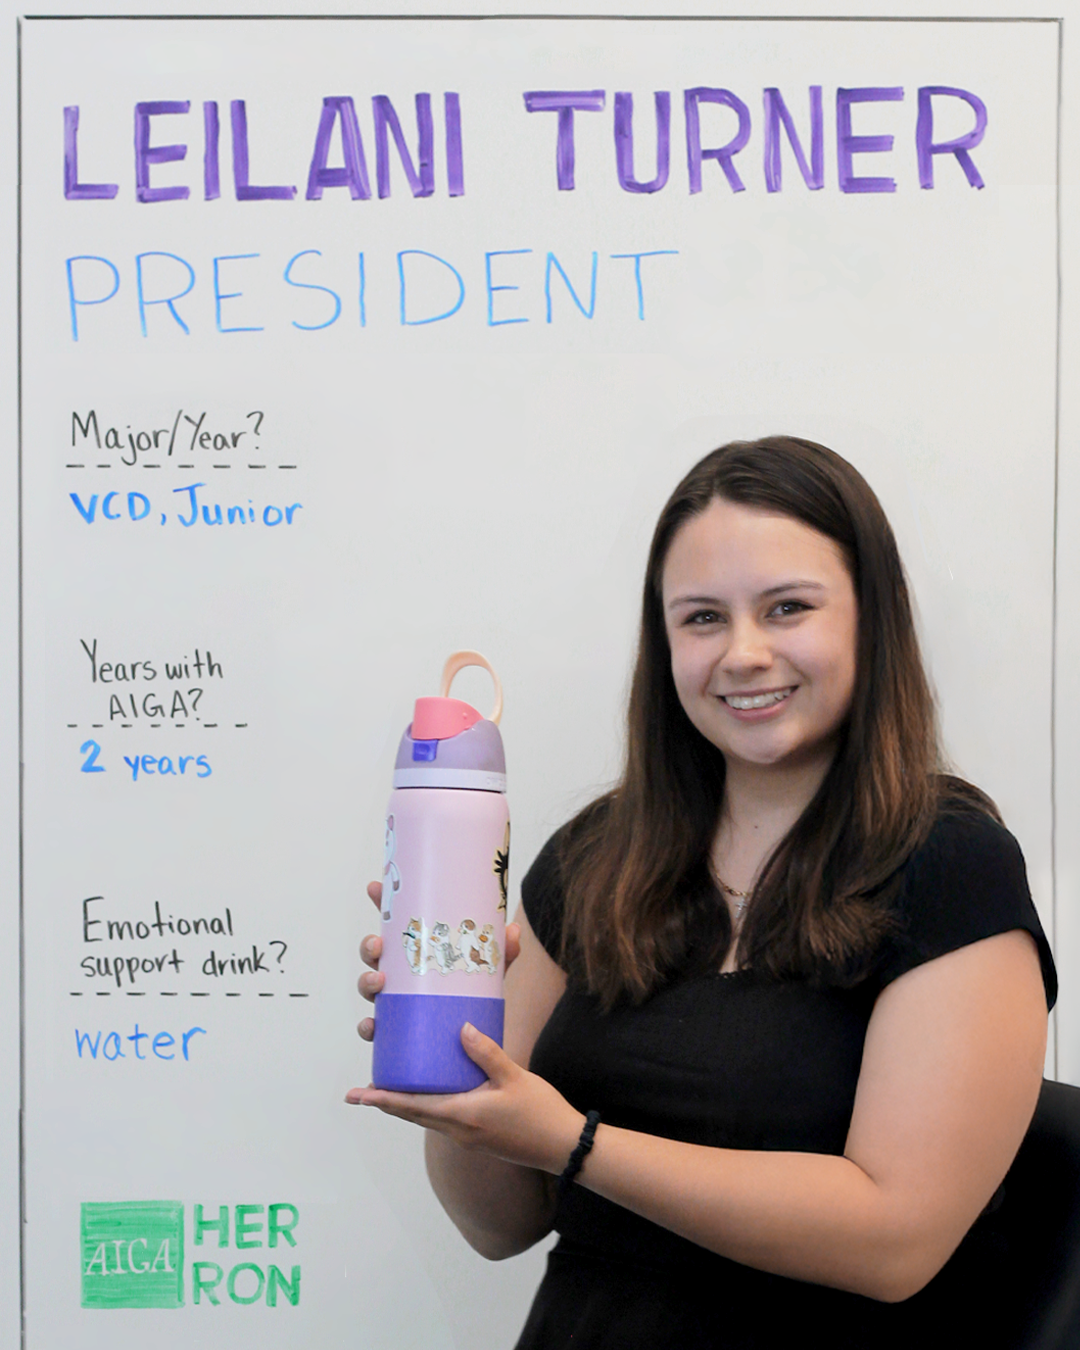 LEILANI TURNER
PRESIDENT
Major/Year?
VCD, Junior
Years with
AIGA?
2 years
Emotional
support drink?
water
AIGA
HER
RON